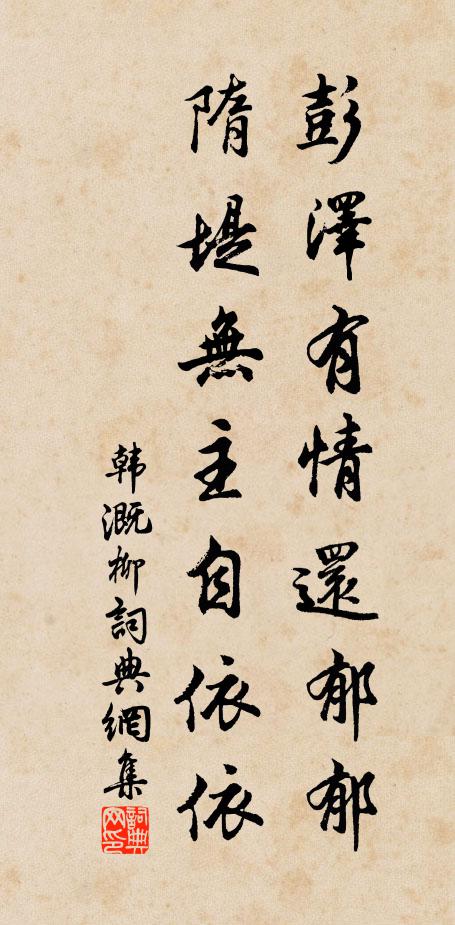 彭澤有情還郁郁
隋堤無主自依依
韩溉柳詞典網集
詞典网印